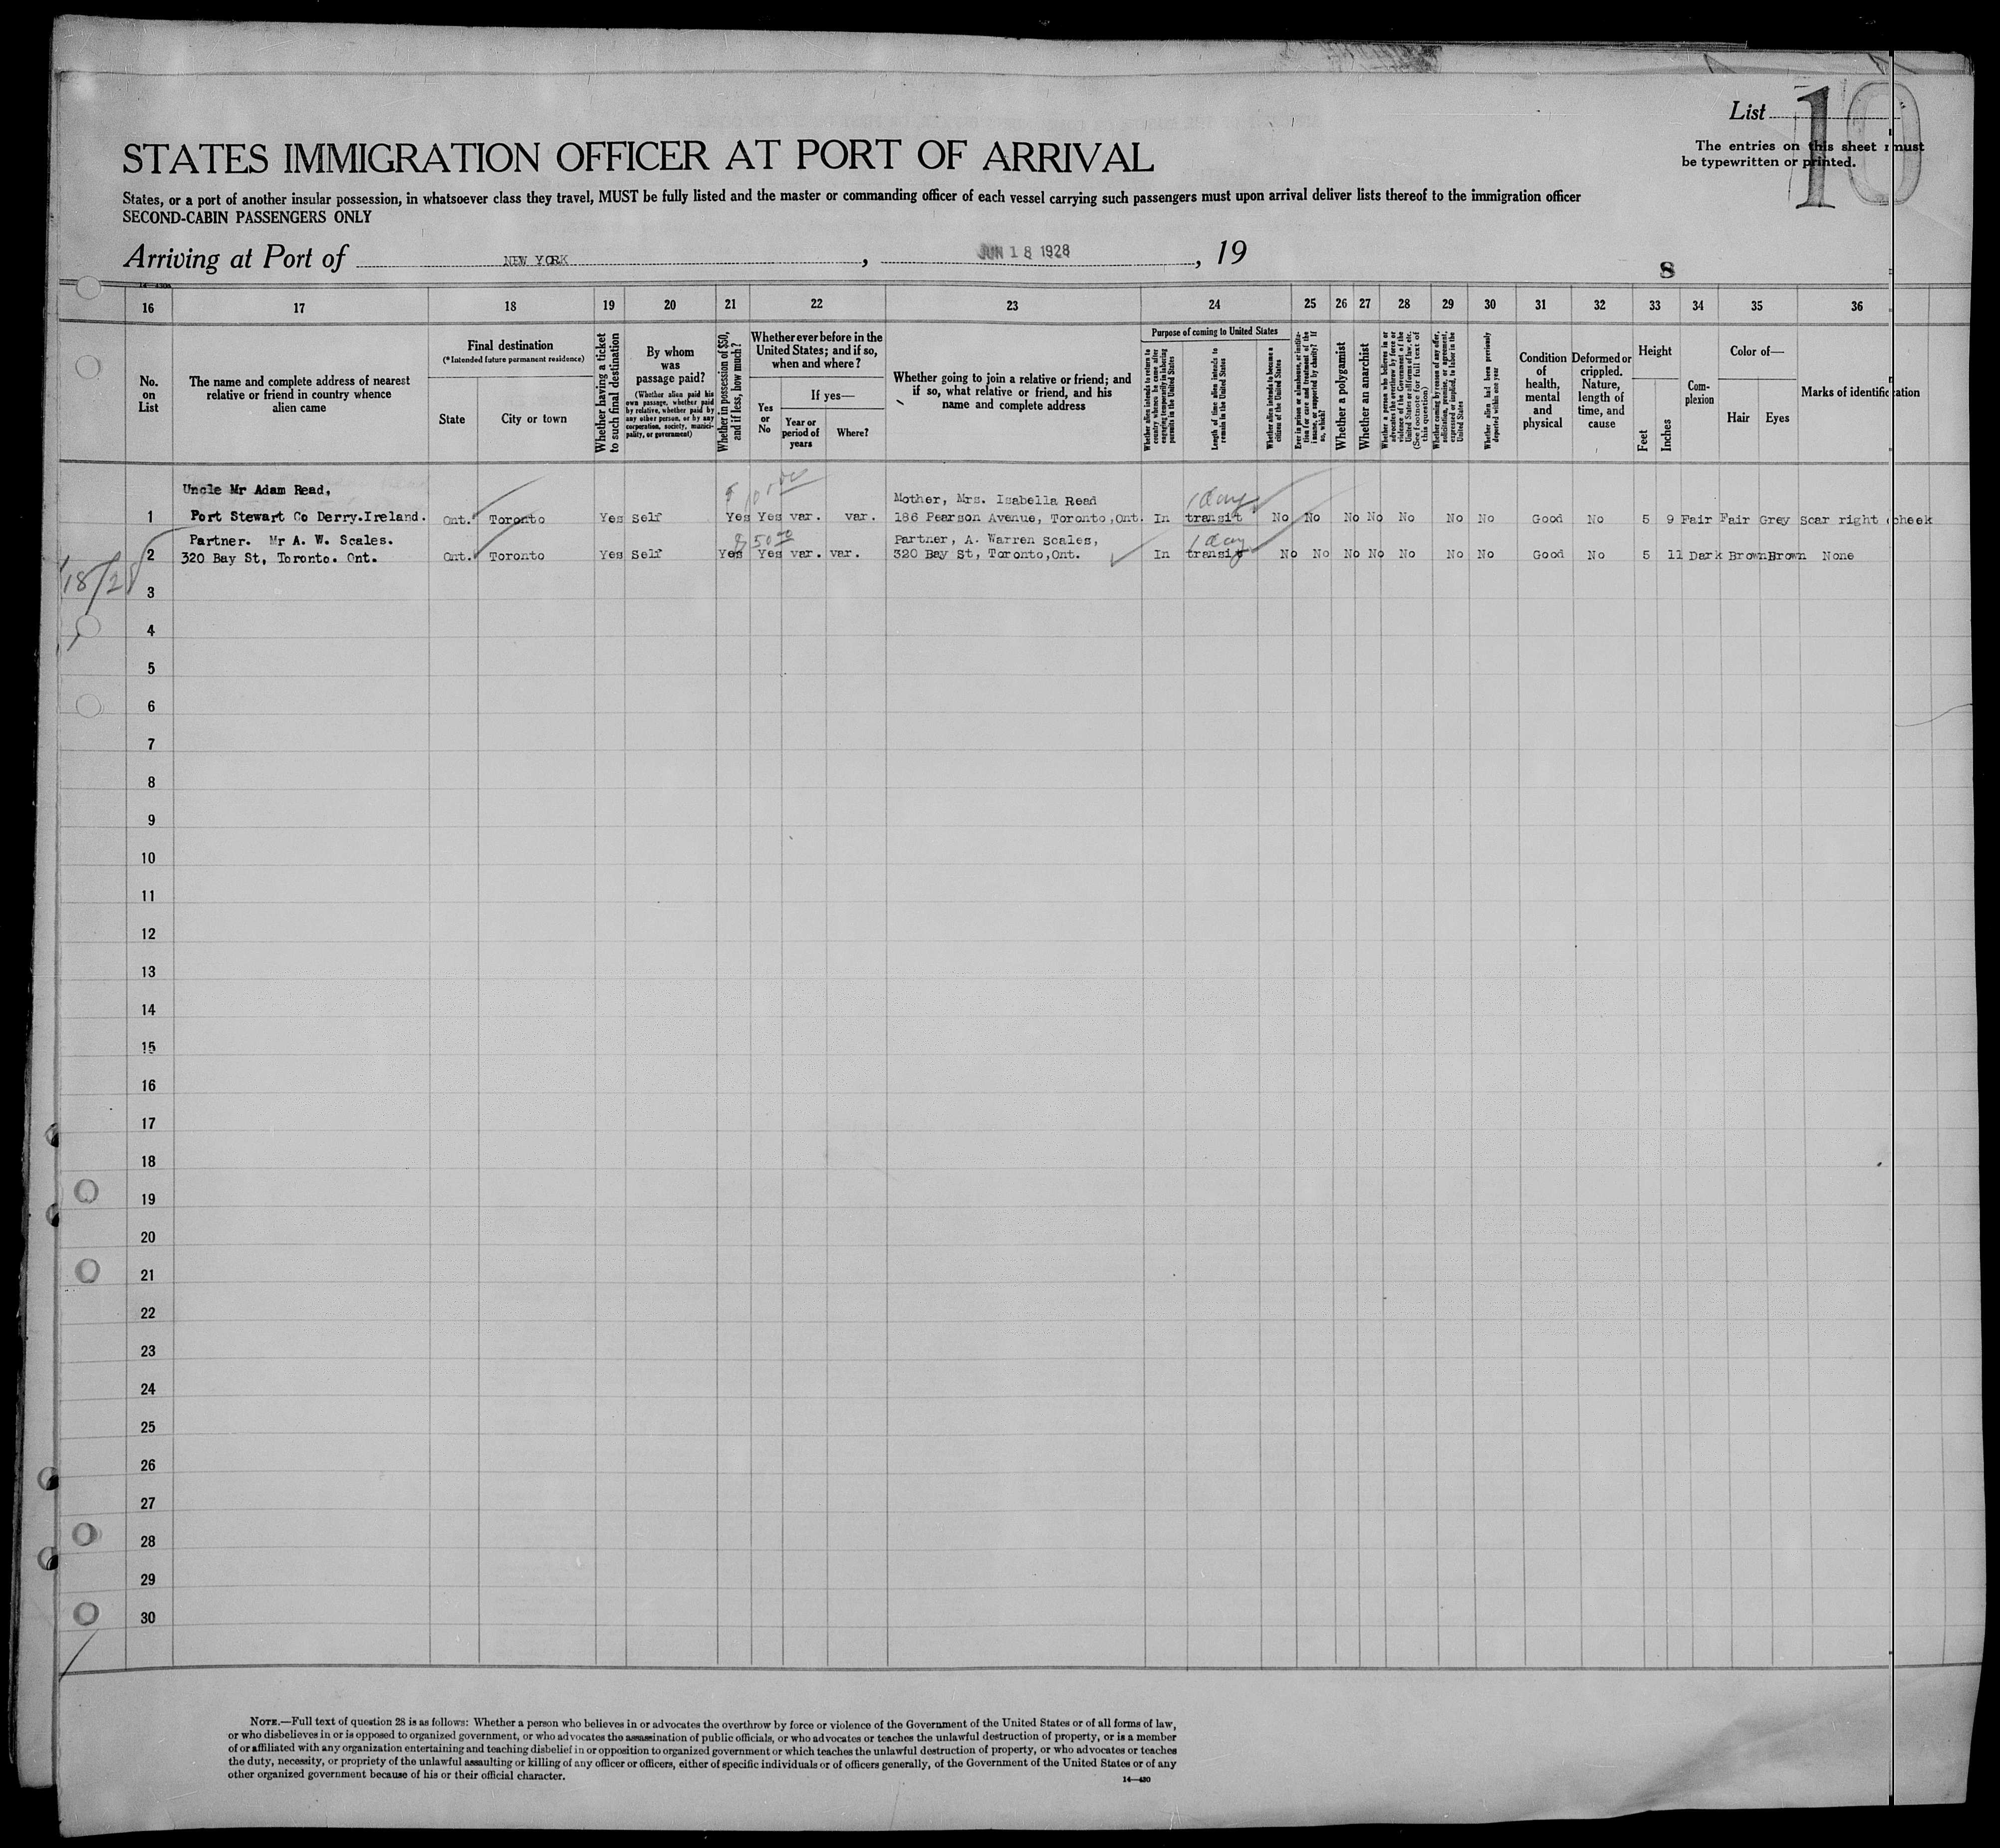 List 10
The entries on this sheet must
be typewritten or printed.
STATES IMMIGRATION OFFICER AT PORT OF ARRIVAL
States, or a port of another insular possession, in whatsoever class they travel, MUST be fully listed and the master or commanding officer of each vessel carrying such passengers must upon arrival deliver lists thereof to the immigration officer
SECOND-CABIN PASSENGERS ONLY
Arriving at Port of NEW YORK, JUN 18 1928, 19
8
16 17 18 19 20 21 22 23 24 25 26 27 28 29 30 31 32 33 34 35 36
No. on List
The name and complete address of nearest
relative or friend in country whence
alien came
Final destination
(*Intended future permanent residence)
State
City or town
Whether having a ticket
to such final destination
By whom
was
passage paid?
(Whether alien paid his
own passage, whether paid
by relative, whether paid by
any other person, or by any
corporation, society, munici-
pality, or government)
Whether in possession of $50,
and if less, how much?
Whether ever before in the
United States; and if so,
when and where?
Yes or No
If yes—
Year or
period of
years
Where?
Whether going to join a relative or friend; and
if so, what relative or friend, and his
name and complete address
Purpose of coming to United States
Whether alien intends to return to
country whence he came after
engaging temporarily in laboring
pursuits in the United States
Length of time alien intends to
remain in the United States
Whether alien intends to become a
citizen of the United States
Ever in prison or almshouse, or institu-
tion for care and treatment of the
insane, or supported by charity? If
so, which?
Whether a polygamist
Whether an anarchist
Whether a person who believes in or
advocates the overthrow by force or
violence of the Government of the
United States or all forms of law, etc.
(See footnote for full text of
this question)
Whether coming by reason of any offer,
solicitation, promise, or agreement,
expressed or implied, to labor in the
United States
Whether alien had been previously
deported within one year
Condition
of
health,
mental
and
physical
Deformed or
crippled.
Nature,
length of
time, and
cause
Height
Feet
Inches
Com-
plexion
Color of—
Hair
Eyes
Marks of identification
Uncle Mr Adam Read,
1 Port Stewart Co Derry.Ireland. Ont. Toronto Yes Self Yes Yes var. var. Mother, Mrs. Isabella Read
186 Pearson Avenue, Toronto,Ont. In transit 1 day No No No No No No No Good No 5 9 Fair Fair Grey Scar right cheek
Partner. Mr A. W. Scales.
2 320 Bay St, Toronto. Ont. Ont. Toronto Yes Self Yes 50 00 Yes var. var. Partner, A. Warren Scales,
320 Bay St, Toronto,Ont. In transit 1 day No No No No No No No Good No 5 11 Dark Brown Brown None
3
4
5
6
7
8
9
10
11
12
13
14
15
16
17
18
19
20
21
22
23
24
25
26
27
28
29
30
NOTE.—Full text of question 28 is as follows: Whether a person who believes in or advocates the overthrow by force or violence of the Government of the United States or of all forms of law,
or who disbelieves in or is opposed to organized government, or who advocates the assassination of public officials, or who advocates or teaches the unlawful destruction of property, or is a member
of or affiliated with any organization entertaining and teaching disbelief in or opposition to organized government or which teaches the unlawful destruction of property, or who advocates or teaches
the duty, necessity, or propriety of the unlawful assaulting or killing of any officer or officers, either of specific individuals or of officers generally, of the Government of the United States or of any
other organized government because of his or their official character.
14—430